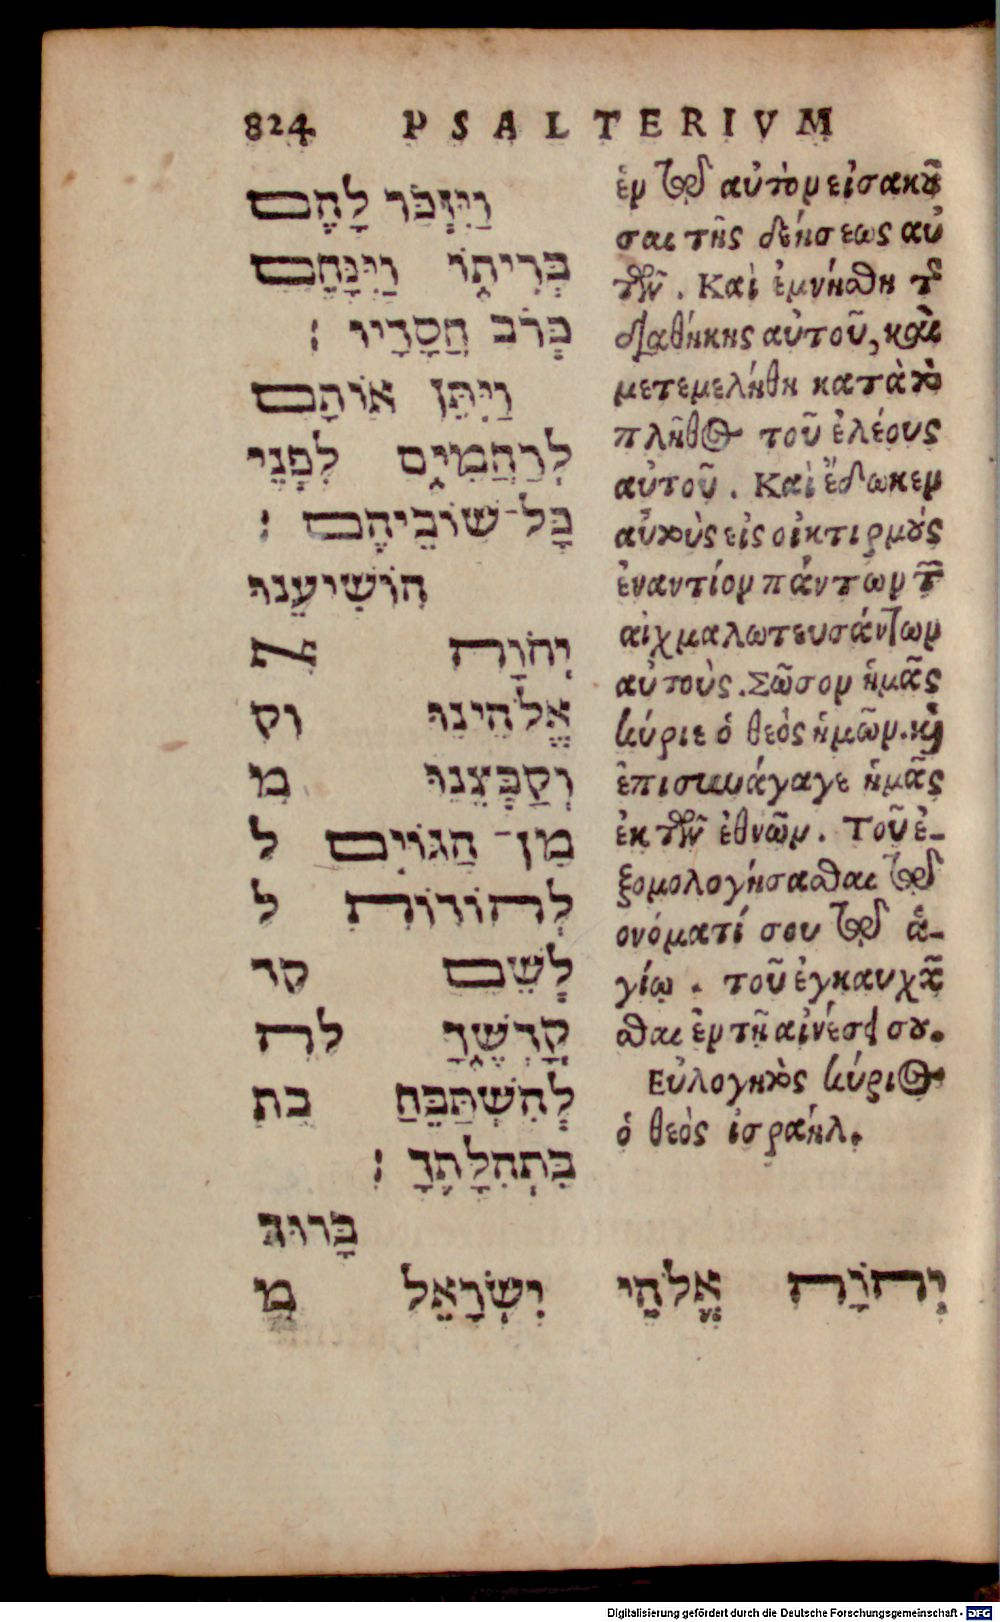 824 PSALTERIVM
וַיִּזְכֹּר לָהֶם
בְּרִיתוֹ וַיִּנָּחֵם
כְּרֹב חֲסָדָיו :
וַיִּתֵּן אוֹתָם
לְרַחֲמִים לִפְנֵי
כָּל־שׁוֹבֵיהֶם :
הוֹשִׁיעֵנוּ
יְהֹוָה א
אֱלֹהֵינוּ וק
וְקַבְּצֵנוּ מִ
מִן־הַגּוֹיִם ל
לְהוֹדוֹת ל
לְשֵׁם קד
קָדְשֶׁךָ לה
לְהִשְׁתַּבֵּחַ בת
בִּתְהִלָּתֶךָ :
בָּרוּךְ
יְהֹוָה אֱלֹהֵי יִשְׂרָאֵל מ
ἐν τῷ αὐτὸν εἰσακοῦ
σαι τῆς δεήσεως αὐ
τῶν. Καὶ ἐμνήσθη τῆς
διαθήκης αὐτοῦ, καὶ
μετεμελήθη κατὰ τὸ
πλῆθος τοῦ ἐλέους
αὐτοῦ. Καὶ ἔδωκεν
αὐτοὺς εἰς οἰκτιρμούς
ἐναντίον πάντων τῶν
αἰχμαλωτευσάντων
αὐτούς. Σῶσον ἡμᾶς
κύριε ὁ θεὸς ἡμῶν. καὶ
ἐπισυνάγαγε ἡμᾶς
ἐκ τῶν ἐθνῶν. Τοῦ ἐ-
ξομολογήσασθαι τῷ
ονόματί σου τῷ ἁ-
γίῳ. τοῦ ἐγκαυχᾶ
σθαι ἐν τῇ αἰνέσει σου.
Εὐλογητὸς κύριος
ὁ θεὸς ἰσραήλ.
Digitalisierung gefördert durch die Deutsche Forschungsgemeinschaft - DFG